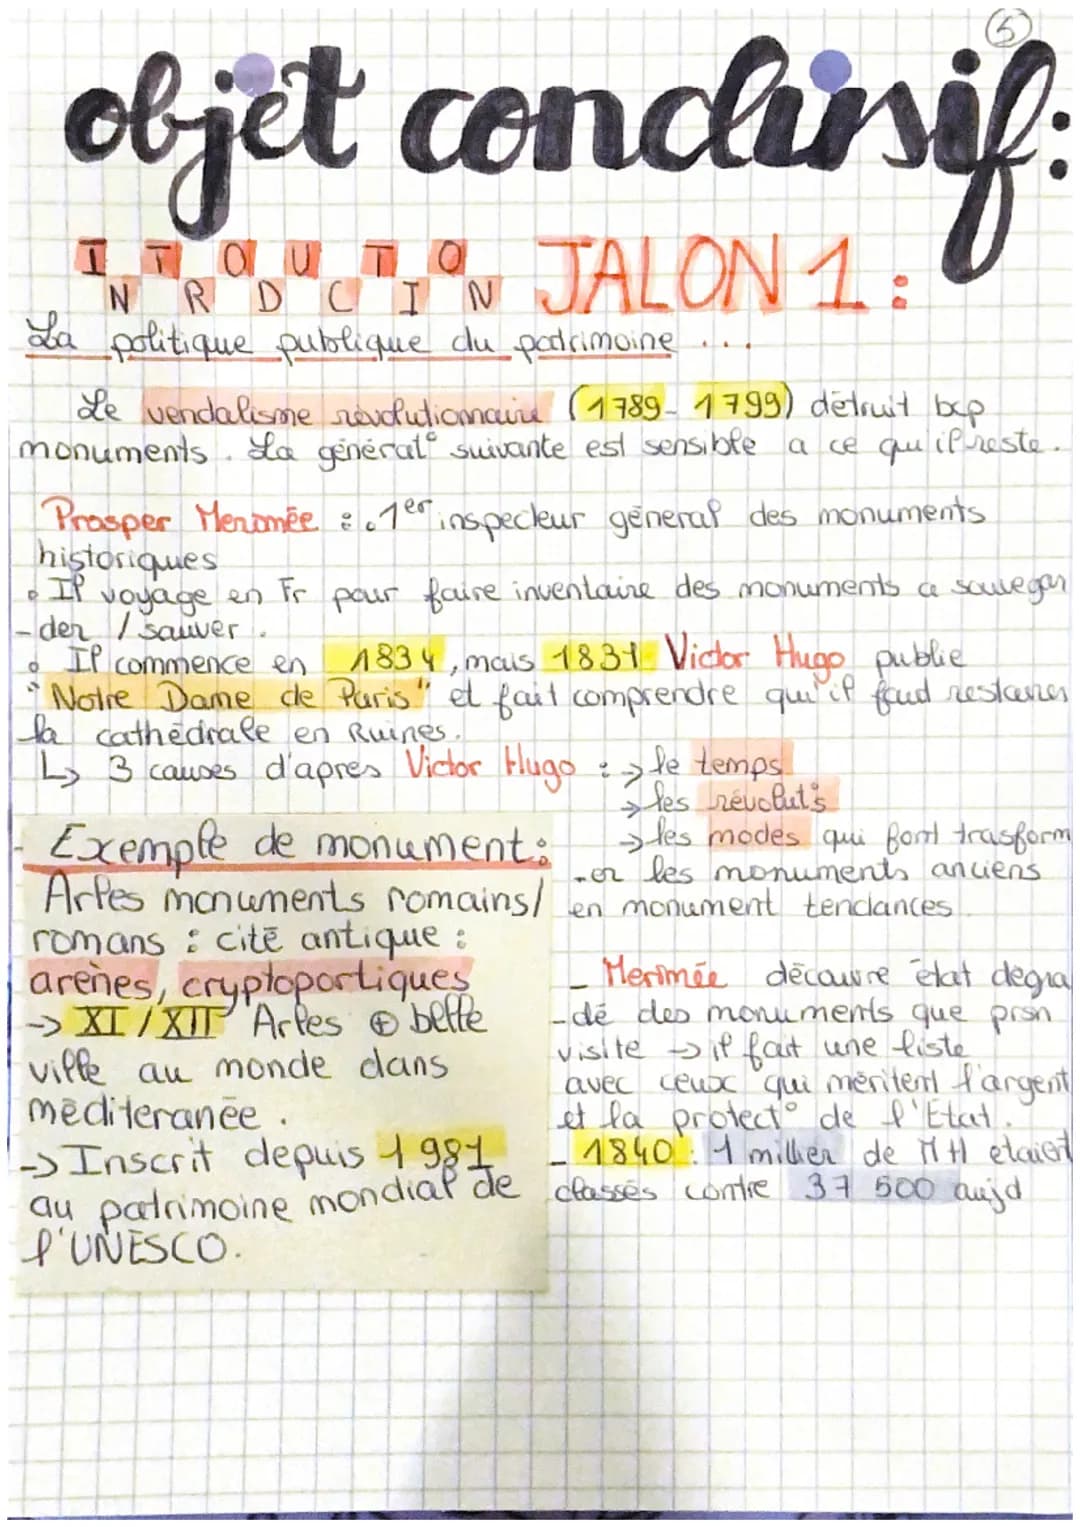 5
objet conclusif:
INTRODUCTION JALON 1 :
La politique publique du patrimoine ...
Le vendalisme révolutionnaire (1789-1799) détruit bcp
monuments. La générat° suivante est sensible a ce qu'il reste.
Prosper Meromée : . 1er inspecteur général des monuments
historiques
• Il voyage en Fr pour faire inventaire des monuments a sauvegar
-der / sauver.
• Il commence en 1834, mais 1831 Victor Hugo publie
"Notre Dame de Paris" et fait comprendre qui'il faud restaurer
la cathédrale en Ruines.
↳ 3 causes d'apres Victor Hugo : → le temps
→ les révolut°s
→ les modes qui font trasform
-er les monuments anciens
en monument tendances
Exemple de monument :
Arles monuments romains/
romans : cité antique :
arènes, cryptoportiques
-> XI / XII Arles ⊕ belle
ville au monde dans
méditeranée.
-> Inscrit depuis 1981
au patrimoine mondial de
l'UNESCO.
- Merimée découvre état dégra
-dé des monuments que prsn
visite → il fait une liste
avec ceux qui méritent l'argent
et la protect° de l'Etat.
- 1840 : 1 millier de MH etaient
classés contre 37 500 aujd